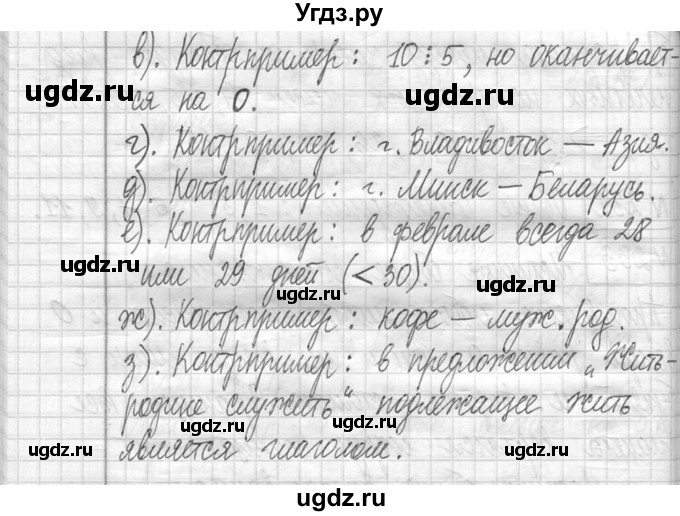 Угдз.ру
в). Контрпример: 10⋮5, но оканчивает-
ugdz.ru
ugdz.ru
ся на 0.
ugdz.ru
г). Контрпример: г. Владивосток — Азия.
д). Контрпример: г. Минск — Беларусь.
е). Контрпример: в феврале всегда 28
ugdz.ru
или 29 дней (< 30).
ugdz.ru
ж). Контрпример: кофе — муж. род.
ugdz.ru
з). Контрпример: в предложении „Жить-
родине служить“ подлежащее жить
ugdz.ru
ugdz.ru
является глаголом.
ugdz.ru
ugdz.ru
ugdz.ru